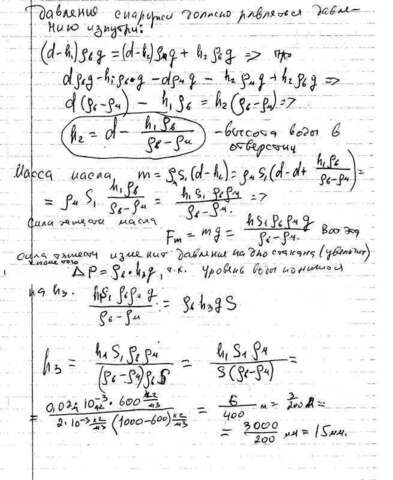 давление снаружи должно равняться давле-
нию изнутри:
(d-h₁)ρвg = (d-h₂)ρмg + h₂ρвg =>
dρвg - h₁ρвg - dρмg - h₂ρмg + h₂ρвg =>
d(ρв-ρм) - h₁ρв = h₂(ρв-ρм) =>
h₂ = d - h₁ρв/(ρв-ρм) - высота воды в
отверстии
Масса масла, m = ρмS₁(d-h₂) = ρмS₁(d-d+ h₁ρв/(ρв-ρм)) =
= ρмS₁ h₁ρв/(ρв-ρм) = h₁S₁ρвρм/(ρв-ρм) =>
Сила тяжести масла
Fт = mg = h₁S₁ρвρмg/(ρв-ρм).
сила тяжести изменит давление на дно стакана (увеличит)
ΔP = ρв·h₃g, т.к. уровень воды понизился
на h₃. h₁S₁ρвρмg/(ρв-ρм) = ρвh₃gS
h₃ = h₁S₁ρвρм/((ρв-ρм)ρвS) = h₁S₁ρм/(S(ρв-ρм)) =
= 6/400 м = 3/200 м =
= 3000/200 мм = 15мм.